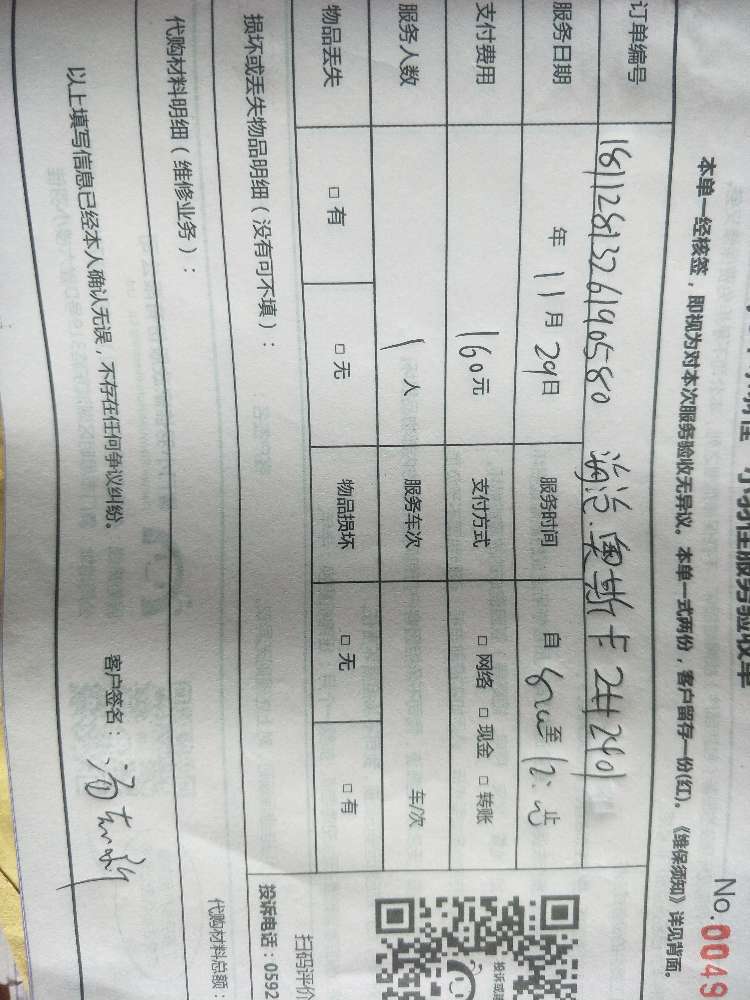 服务验收单
No.0049
本单一经核签，即视为对本次服务验收无异议。本单一式两份，客户留存一份(红)。《维保须知》详见背面。
订单编号 1811281326190580 海沧.奥斯卡2#2401
服务日期 年 11 月 29 日 服务时间 自 至 12: 止
支付费用 160 元 支付方式 □ 网络 □ 现金 □ 转账
服务人数 1 人 服务车次 车/次
物品丢失 □ 有 □ 无 物品损坏 □ 无 □ 有
损坏或丢失物品明细（没有可不填）：
扫码评价
投诉电话：0592
代购材料明细（维修业务）：
代购材料总额：
以上填写信息已经本人确认无误，不存在任何争议纠纷。 客户签名：